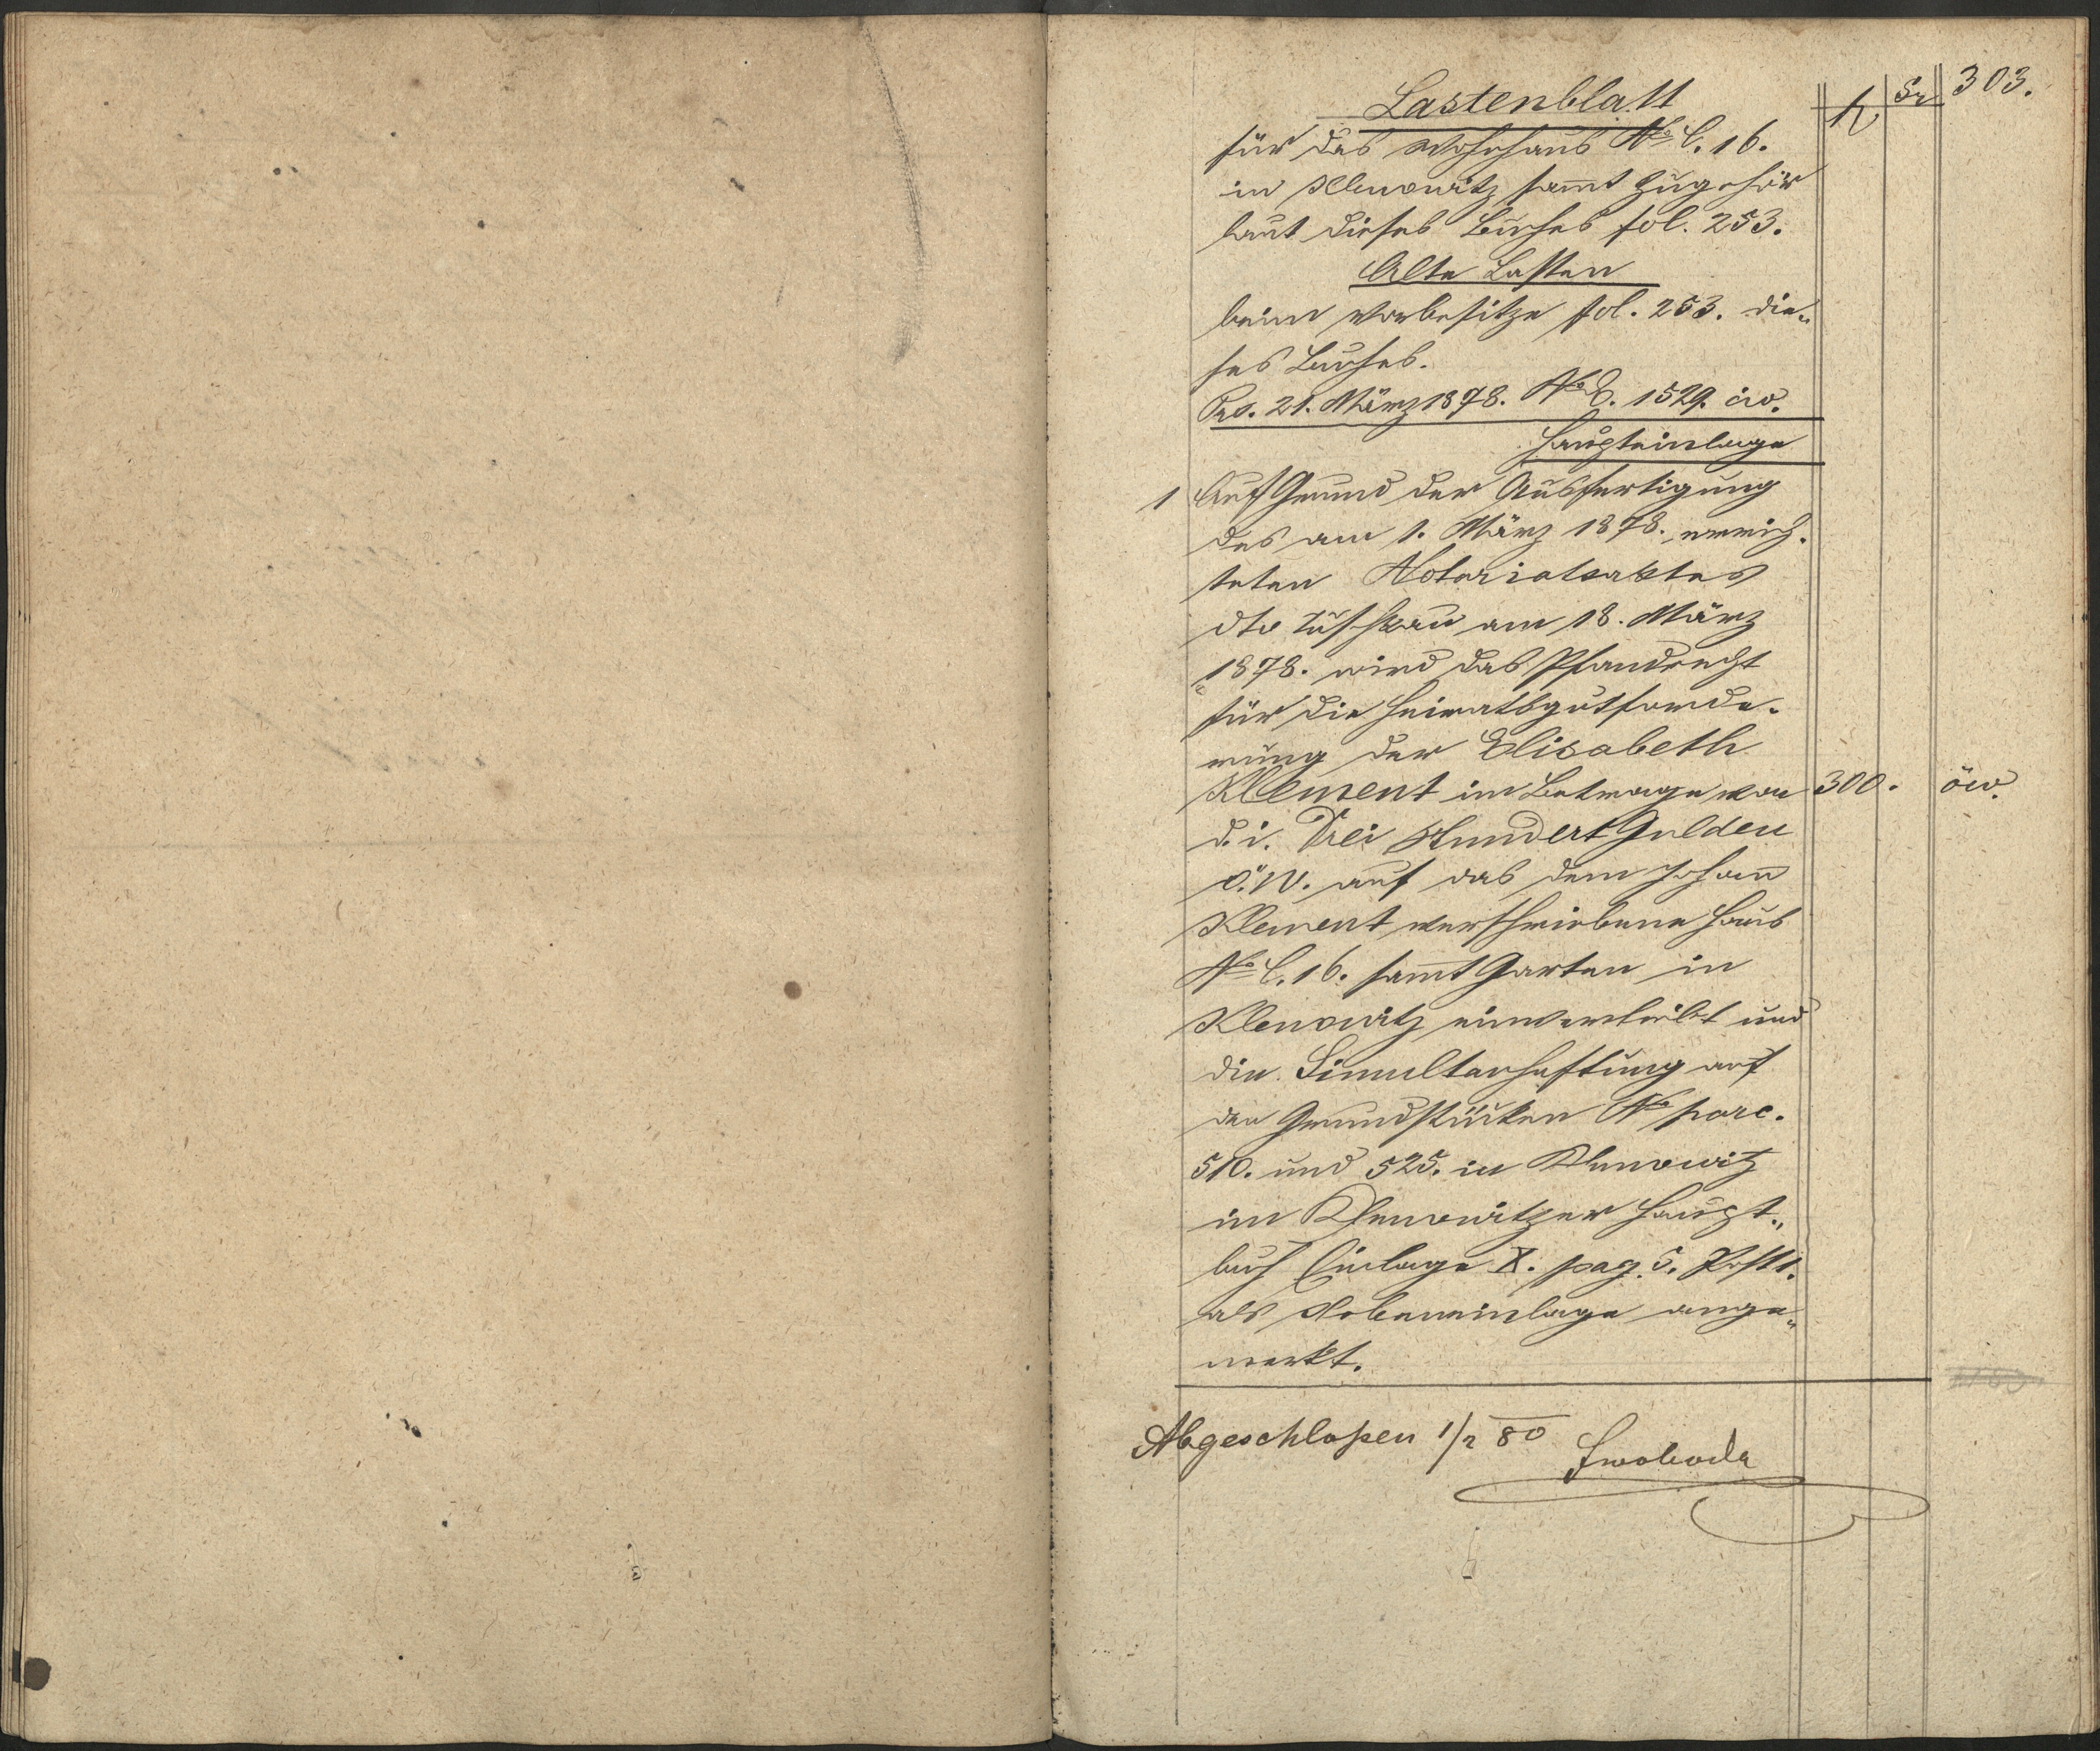 303.
fl kr
Lastenblatt
für das Wohnhaus No C. 16.
in Klenowitz sammt Zugehör
laut dieses Buches fol. 253.
Alte Lasten
beim Vorbesitze fol. 253. die„
ses Buches.
Prs. 21. März 1878. No E. 1529. civ.
Haupteinlage
1 Auf Grund der Ausfertigung
des am 1. März 1878. errich„
teten Notariatsaktes
dto Tuschkau am 18. März
1878. wird das Pfandrecht
für die Heiratsgutforde„
rung der Elisabeth
Klement im Betrage von 300. öw.
d. i. Drei Hundert Gulden
ö. W. auf das dem Johann
Klement verschriebene Haus
No C. 16. sammt Garten in
Klenowitz einverleibt und
die Simultanhaftung auf
den Grundstücken No parc.
510. und 525. in Klenowitz
im Klenowitzer Haupt„
buch Einlage X. pag. 5. Post 1.
als Nebeneinlage ange„
merkt.
Abgeschlossen 1/2 80
Swoboda